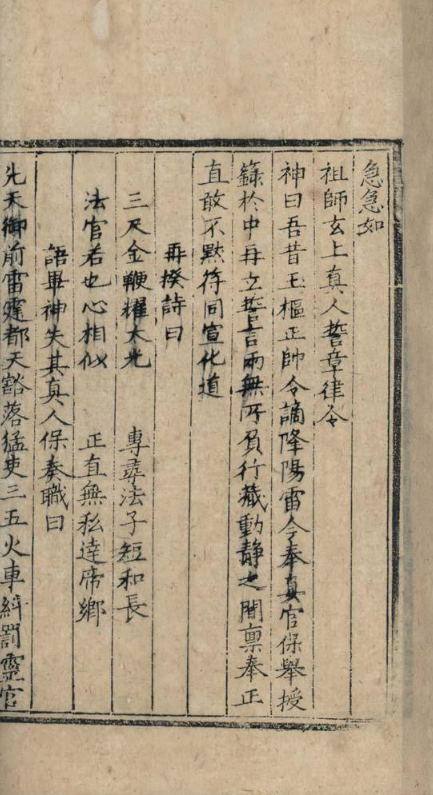 急急如
祖師玄上真人誓章律令
神曰吾昔玉樞正帥令謫降陽雷今奉真官保舉授
籙於中再立誓言兩無所負行藏動靜之間稟奉正
直敢不默符同宣化道
再揆詩曰
三尺金鞭耀太光 專靠法子短和長
法官若也心相似 正直無私達帝鄉
語畢神失其真人保奏職曰
先天御前雷霆都天豁落猛吏三五火車糾罰靈官